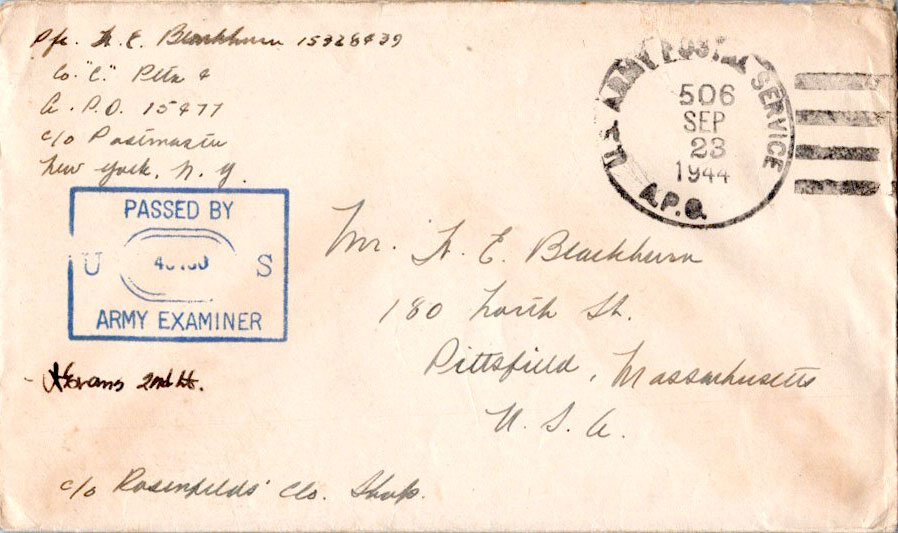 Pfc. H. E. Blackburn 15328439
Co. "C." Pltn 4
A. P. O. 15477
c/o Postmaster
New York, N. Y.
U.S. ARMY POSTAL SERVICE
506
SEP
23
1944
A.P.O.
PASSED BY
U S
ARMY EXAMINER
2nd Lt.
Mr. H. E. Blackburn
180 North St.
Pittsfield, Massachusetts
U. S. A.
c/o Rosenfelds' Clo. Shop.